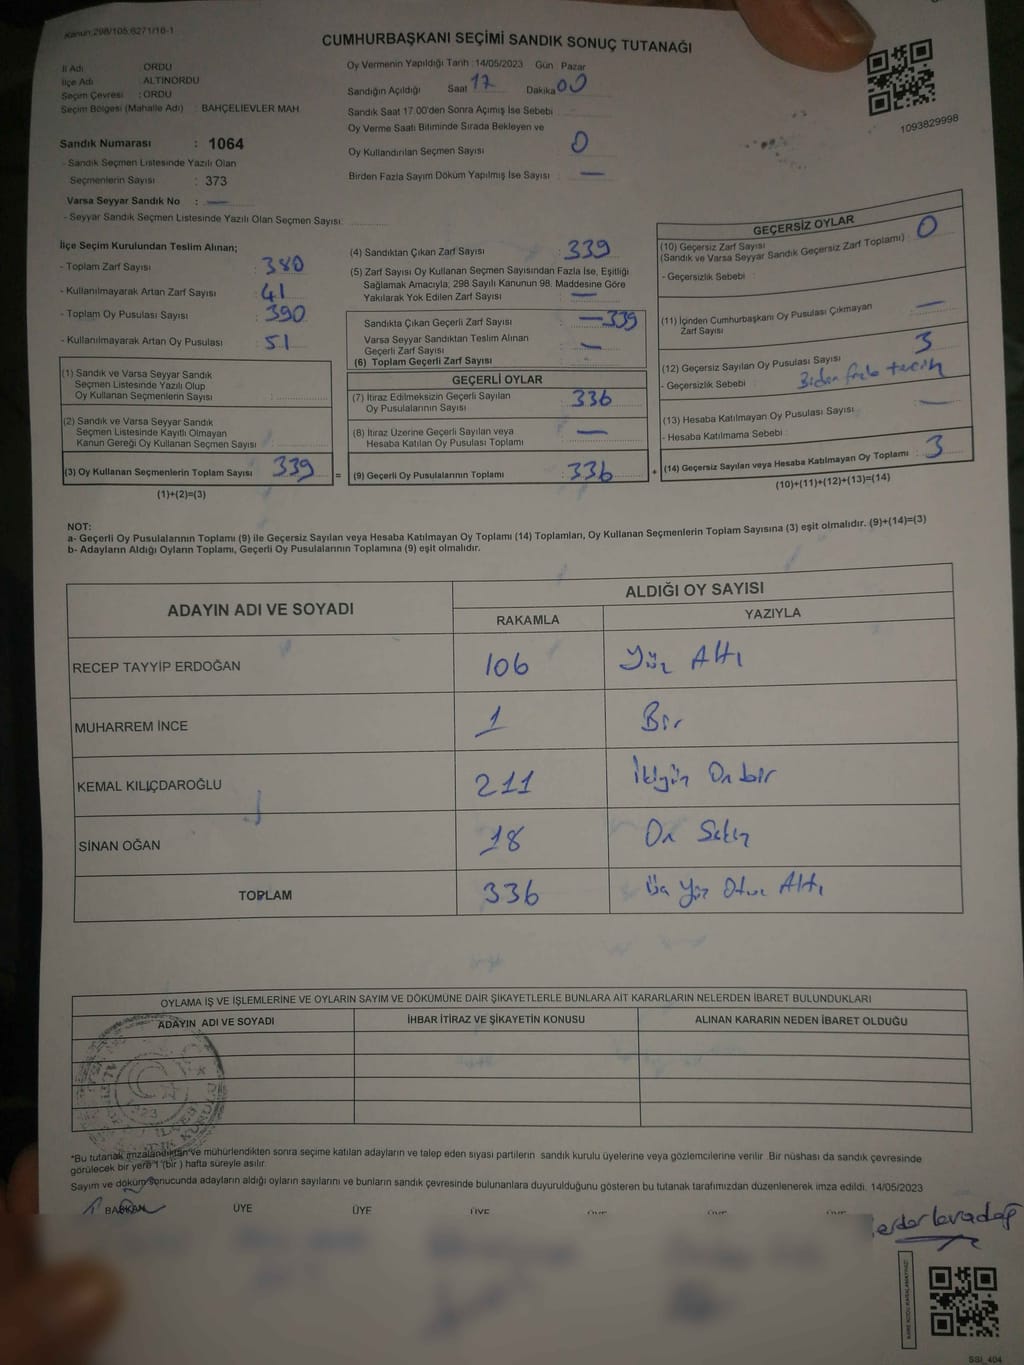 Kanun:298/105,6271/16-1
CUMHURBAŞKANI SEÇİMİ SANDIK SONUÇ TUTANAĞI
İl Adı : ORDU
İlçe Adı : ALTINORDU
Seçim Çevresi : ORDU
Seçim Bölgesi (Mahalle Adı) : BAHÇELİEVLER MAH.
Sandık Numarası : 1064
- Sandık Seçmen Listesinde Yazılı Olan
Seçmenlerin Sayısı : 373
Varsa Seyyar Sandık No : —
- Seyyar Sandık Seçmen Listesinde Yazılı Olan Seçmen Sayısı:
Oy Vermenin Yapıldığı Tarih : 14/05/2023 Gün : Pazar
Sandığın Açıldığı Saat 17 Dakika 00
Sandık Saat 17:00'den Sonra Açımış İse Sebebi
Oy Verme Saati Bitiminde Sırada Bekleyen ve
Oy Kullandırılan Seçmen Sayısı : 0
Birden Fazla Sayım Döküm Yapılmış İse Sayısı : —
1093829998
İlçe Seçim Kurulundan Teslim Alınan;
- Toplam Zarf Sayısı : 380
- Kullanılmayarak Artan Zarf Sayısı : 41
- Toplam Oy Pusulası Sayısı : 390
- Kullanılmayarak Artan Oy Pusulası : 51
(1) Sandık ve Varsa Seyyar Sandık
Seçmen Listesinde Yazılı Olup
Oy Kullanan Seçmenlerin Sayısı :
(2) Sandık ve Varsa Seyyar Sandık
Seçmen Listesinde Kayıtlı Olmayan
Kanun Gereği Oy Kullanan Seçmen Sayısı :
(3) Oy Kullanan Seçmenlerin Toplam Sayısı 339 =
(1)+(2)=(3)
(4) Sandıktan Çıkan Zarf Sayısı : 339
(5) Zarf Sayısı Oy Kullanan Seçmen Sayısından Fazla İse, Eşitliği
Sağlamak Amacıyla; 298 Sayılı Kanunun 98. Maddesine Göre
Yakılarak Yok Edilen Zarf Sayısı : —
Sandıkta Çıkan Geçerli Zarf Sayısı : —339
Varsa Seyyar Sandıktan Teslim Alınan
Geçerli Zarf Sayısı : —
(6) Toplam Geçerli Zarf Sayısı :
GEÇERLİ OYLAR
(7) İtiraz Edilmeksizin Geçerli Sayılan
Oy Pusulalarının Sayısı : 336
(8) İtiraz Üzerine Geçerli Sayılan veya
Hesaba Katılan Oy Pusulası Toplamı : —
(9) Geçerli Oy Pusulalarının Toplamı : 336 +
GEÇERSİZ OYLAR
(10) Geçersiz Zarf Sayısı
(Sandık ve Varsa Seyyar Sandık Geçersiz Zarf Toplamı) : 0
- Geçersizlik Sebebi :
(11) İçinden Cumhurbaşkanı Oy Pusulası Çıkmayan
Zarf Sayısı : —
(12) Geçersiz Sayılan Oy Pusulası Sayısı : 3
- Geçersizlik Sebebi : Birden fazla tercih
(13) Hesaba Katılmayan Oy Pusulası Sayısı : —
- Hesaba Katılmama Sebebi :
(14) Geçersiz Sayılan veya Hesaba Katılmayan Oy Toplamı : 3
(10)+(11)+(12)+(13)=(14)
NOT:
a- Geçerli Oy Pusulalarının Toplamı (9) ile Geçersiz Sayılan veya Hesaba Katılmayan Oy Toplamı (14) Toplamları, Oy Kullanan Seçmenlerin Toplam Sayısına (3) eşit olmalıdır. (9)+(14)=(3)
b- Adayların Aldığı Oyların Toplamı, Geçerli Oy Pusulalarının Toplamına (9) eşit olmalıdır.
ADAYIN ADI VE SOYADI ALDIĞI OY SAYISI
RAKAMLA YAZIYLA
RECEP TAYYİP ERDOĞAN 106 Yüz Altı
MUHARREM İNCE 1 Bir
KEMAL KILIÇDAROĞLU 211 İkiyüz On bir
SİNAN OĞAN 18 On Sekiz
TOPLAM 336 Üç Yüz Otuz Altı
OYLAMA İŞ VE İŞLEMLERİNE VE OYLARIN SAYIM VE DÖKÜMÜNE DAİR ŞİKAYETLERLE BUNLARA AİT KARARLARIN NELERDEN İBARET BULUNDUKLARI
ADAYIN ADI VE SOYADI İHBAR İTİRAZ VE ŞİKAYETİN KONUSU ALINAN KARARIN NEDEN İBARET OLDUĞU
*Bu tutanak imzalandıktan ve mühürlendikten sonra seçime katılan adayların ve talep eden siyasi partilerin sandık kurulu üyelerine veya gözlemcilerine verilir. Bir nüshası da sandık çevresinde
görülecek bir yere 1 (bir) hafta süreyle asılır.
Sayım ve döküm sonucunda adayların aldığı oyların sayılarını ve bunların sandık çevresinde bulunanlara duyurulduğunu gösteren bu tutanak tarafımızdan düzenlenerek imza edildi. 14/05/2023
BAŞKAN ÜYE ÜYE ÜYE ÜYE ÜYE
SSI_404